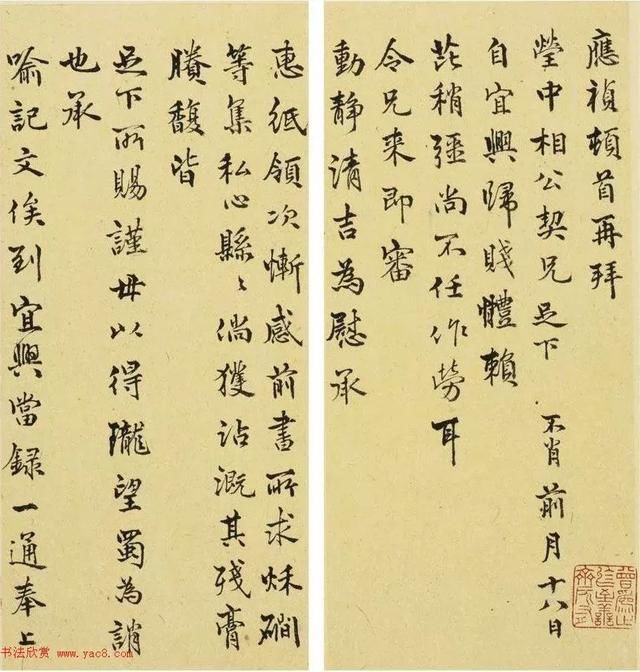 應禎頓首再拜
瑩中相公契兄足下 不肖前月十八日
自宜興歸賤體賴
芘稍彊尚不任作勞耳
令兄来即審
動静清吉為慰承
惠紙領次慚感前書所求稣磵
等集私心縣〻倘獲沾溉其残膏
賸馥皆
足下所賜謹毋以得隴望蜀為誚
也承
喻記文俟到宜興當録一通奉上
书法欣赏 www.yac8.com